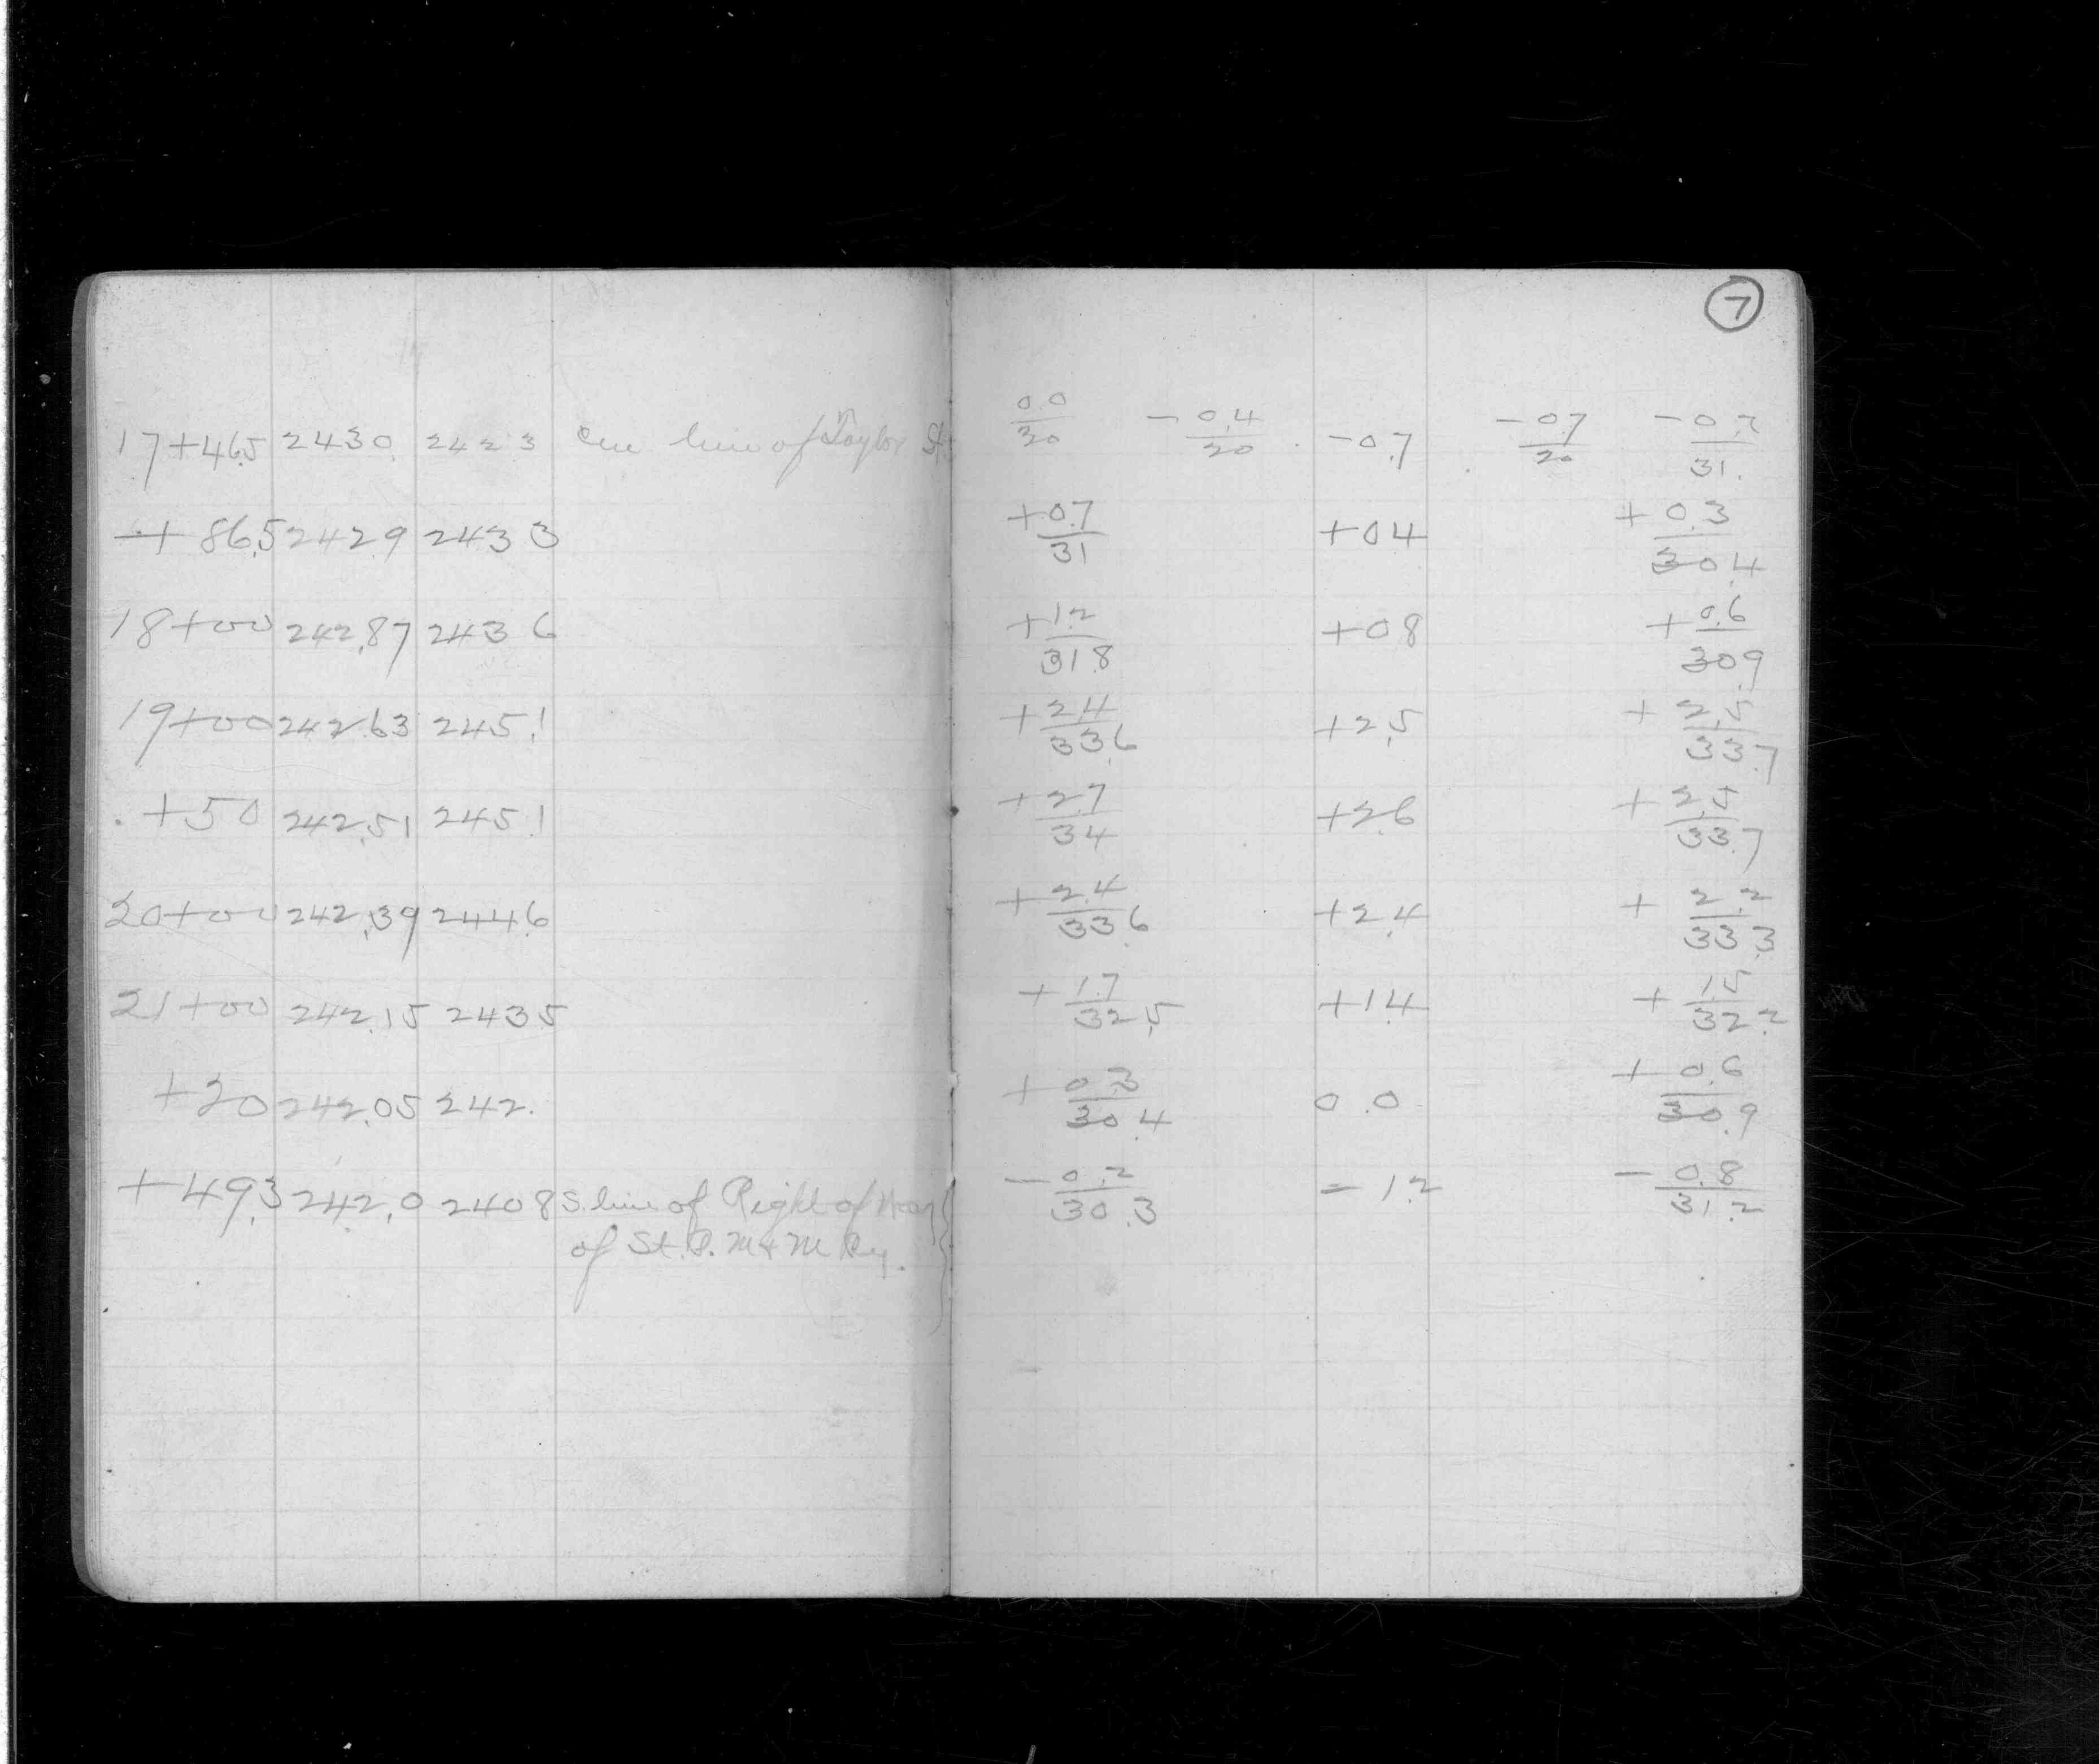 7
17+46.5 243.0 242.3 Cen line of Taylor St. 0.0/20 -0.4/20 -0.7 -0.7/20 -0.7/31.
+86.5 242.9 243.3 +0.7/31 +0.4 +0.3/30.4
18+00 242.87 243.6 +1.2/31.8 +0.8 +0.6/30.9
19+00 242.63 245.1 +2.4/33.6 +2.5 +2.5/33.7
+50 242.51 245.1 +2.7/34 +2.6 +2.5/33.7
20+00 242.39 244.6 +2.4/33.6 +2.4 +2.2/33.3
21+00 242.15 243.5 +1.7/32.5 +1.4 +1.5/32.2
+20 242.05 242. +0.3/30.4 0.0 +0.6/30.9
+49.3 242.0 240.8 S. line of Right of Way -0.2/30.3 -1.2 -0.8/31.2
of St. P. M & M Ry.